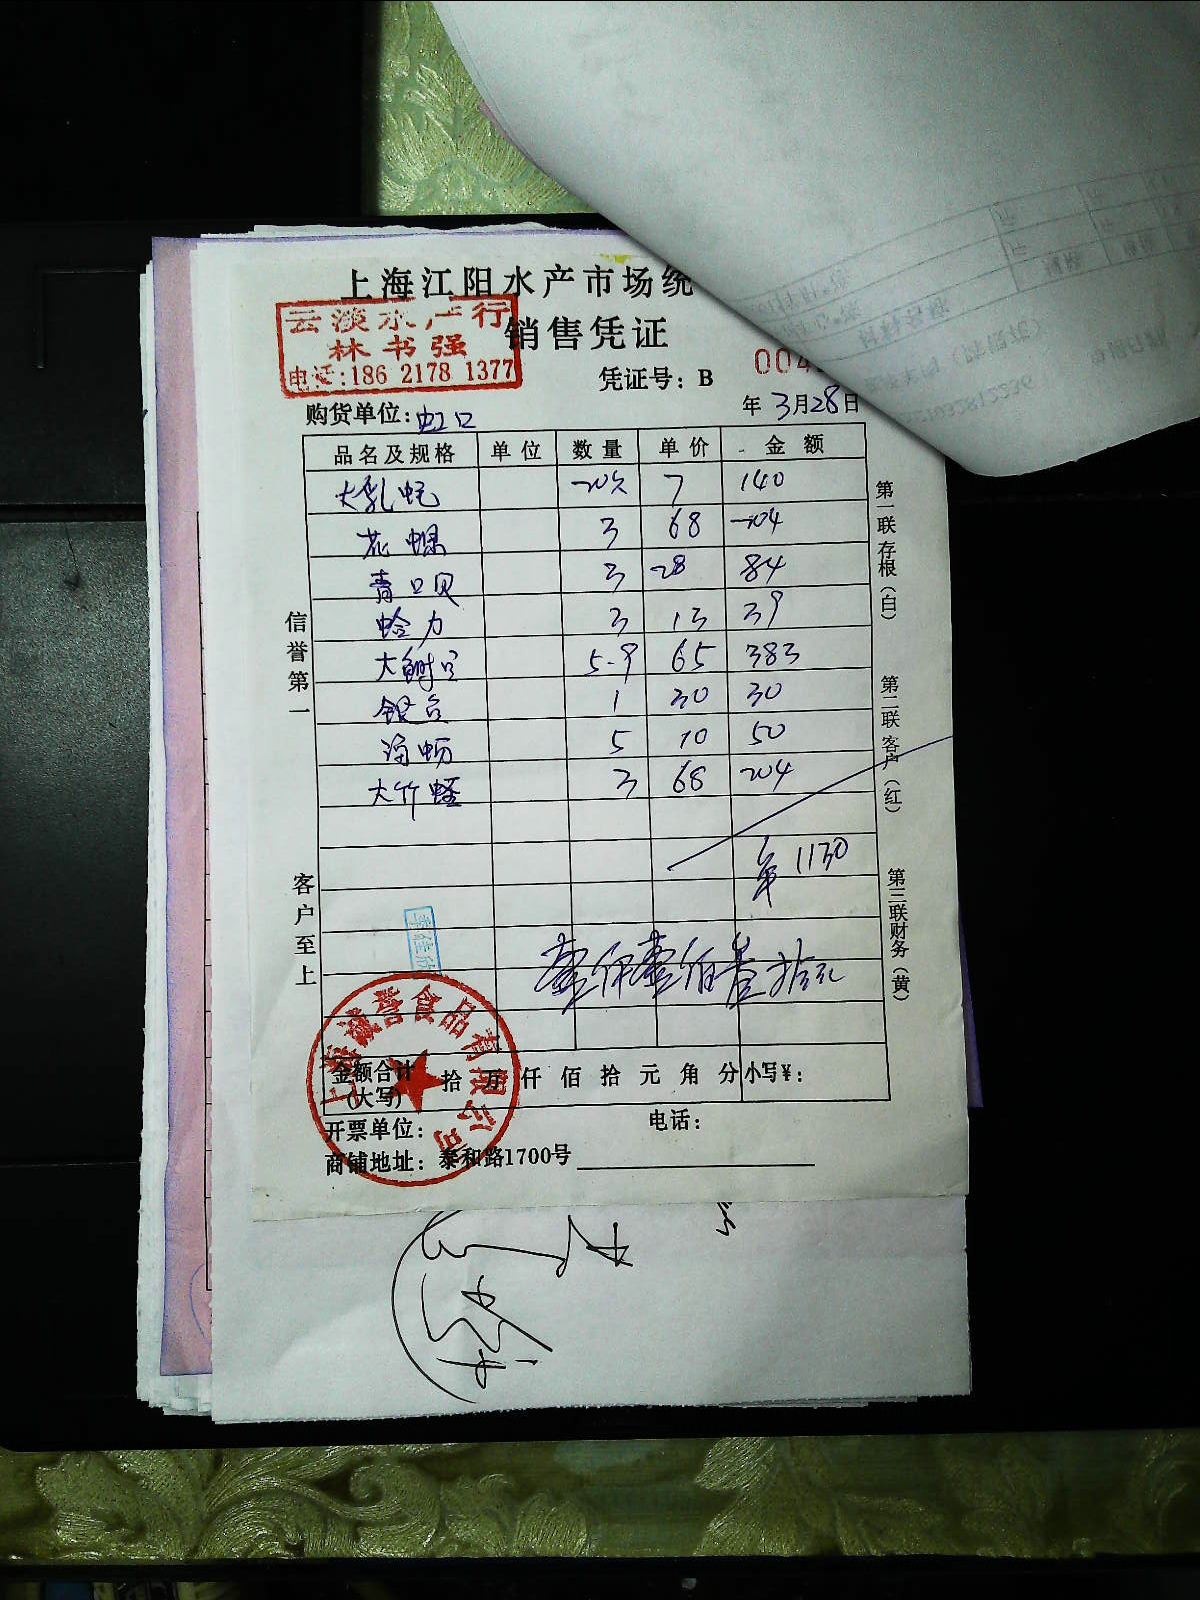 上海江阳水产市场统
云淡水产行
林书强
电话:186 2178 1377
销售凭证
凭证号: B 004
购货单位: 虹口 年 3月28日
品名及规格 单位 数量 单价 金额
大乳蚝 20只 7 140
花螺 3 68 204
青口贝 3 28 84
蛤力 3 13 39
大鲍 5.9 65 383
1 30 30
海蛎 5 10 50
大竹蛏 3 68 204
1130
壹仟壹佰叁拾元
信誉第一
客户至上
第一联存根(白)
第二联客户(红)
第三联财务(黄)
李佳欣
上海诚誉食品有限公司
金额合计
(大写) 拾 万 仟 佰 拾 元 角 分 小写¥:
开票单位: 电话:
商铺地址: 泰和路1700号